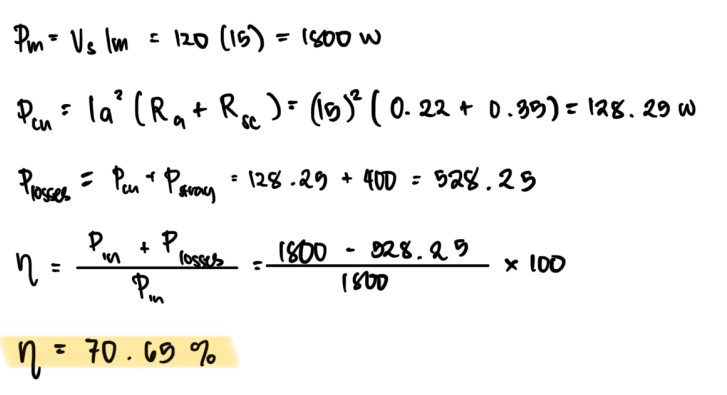 Pin = Vs Im = 120 (15) = 1800 W
Pcu = Ia² (Ra + Rsc) = (15)² (0.22 + 0.35) = 128.25 W
Plosses = Pcu + Pstray = 128.25 + 400 = 528.25
η = (Pin + Plosses) / Pin = (1800 - 528.25) / 1800 × 100
η = 70.65 %